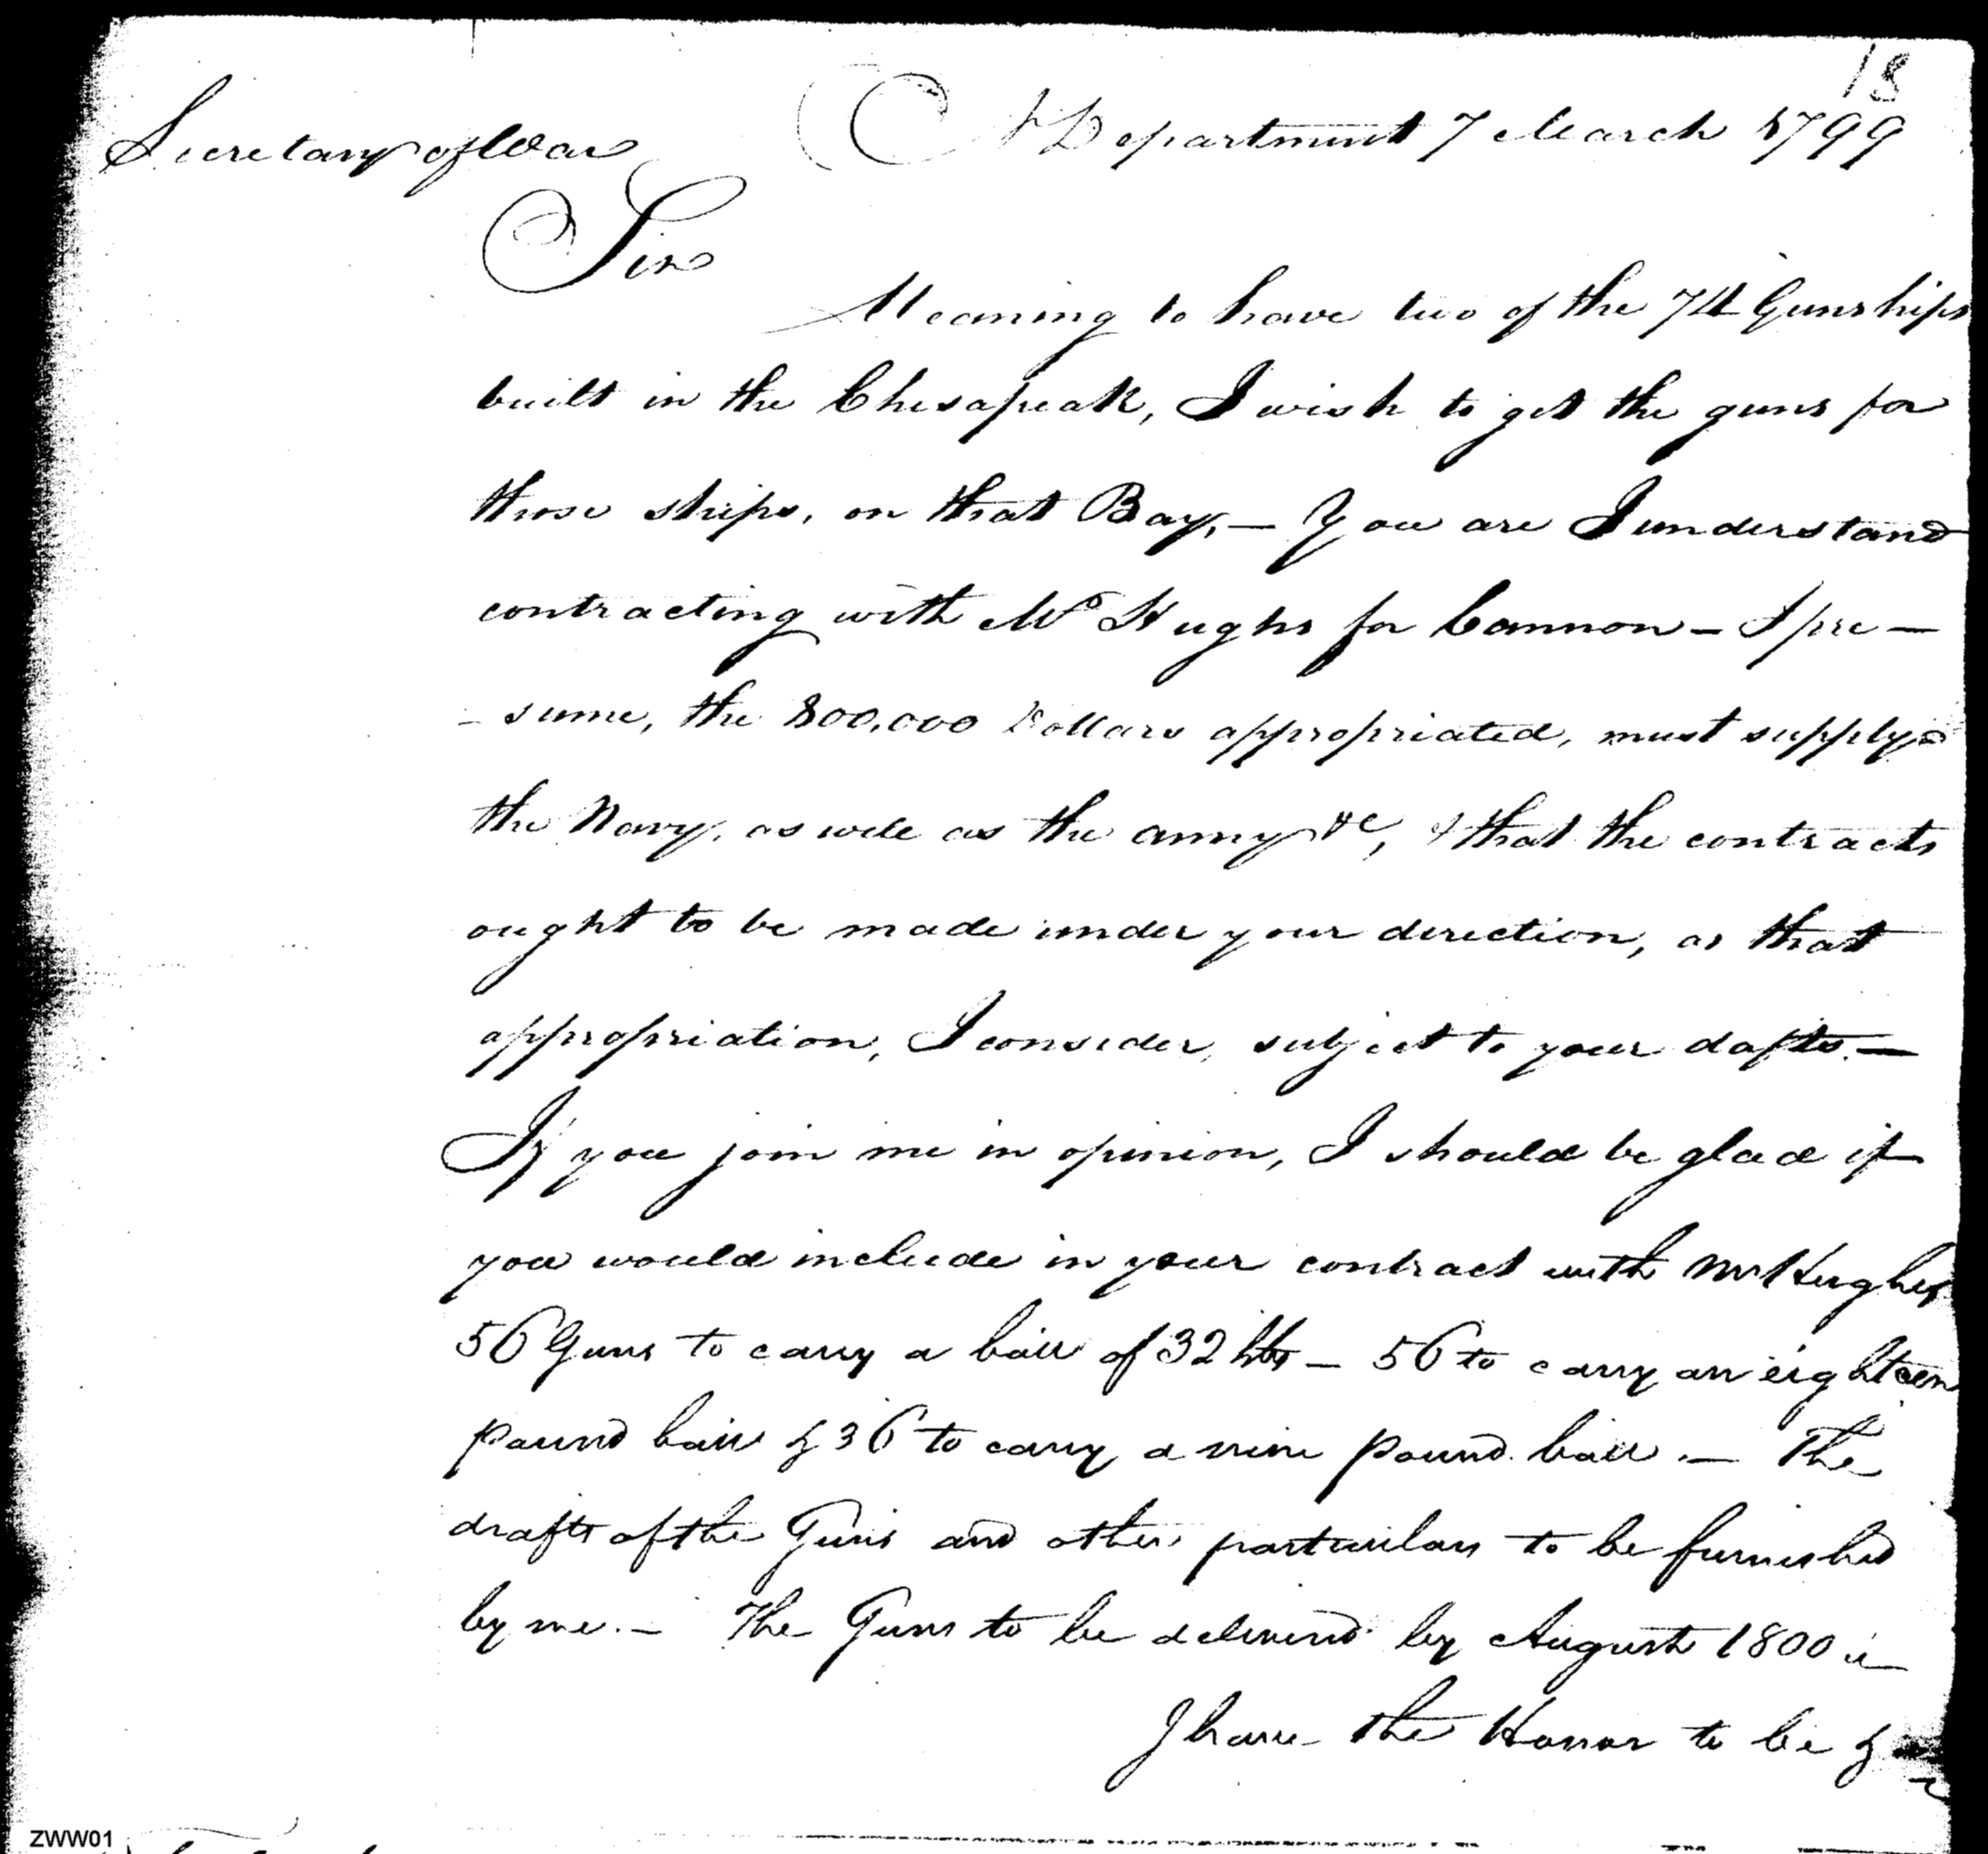 18
Secretary of War
N Department 7 March 1799
Sir
Meaning to have two of the 74 Gunships
built in the Chesapeak, I wish to get the guns for
those ships, on that Bay, — You are I understand
contracting with Mr Hughs for Cannon — I pre —
- sume, the 800,000 Dollars appropriated, must supply
the Navy, as well as the army &c, & that the contracts
ought to be made under your direction, as that
appropriation, I consider, subject to your dafts. —
If you join me in opinion, I should be glad if
you would include in your contract with Mr Hughes
56 Guns to carry a ball of 32 lbs — 56 to carry an eighteen
pound ball & 36 to carry a nine pound ball. — The
drafts of the Guns and other particulars to be furnished
by me. — The Guns to be delivered by August 1800
I have the Honor to be &
ZWW01